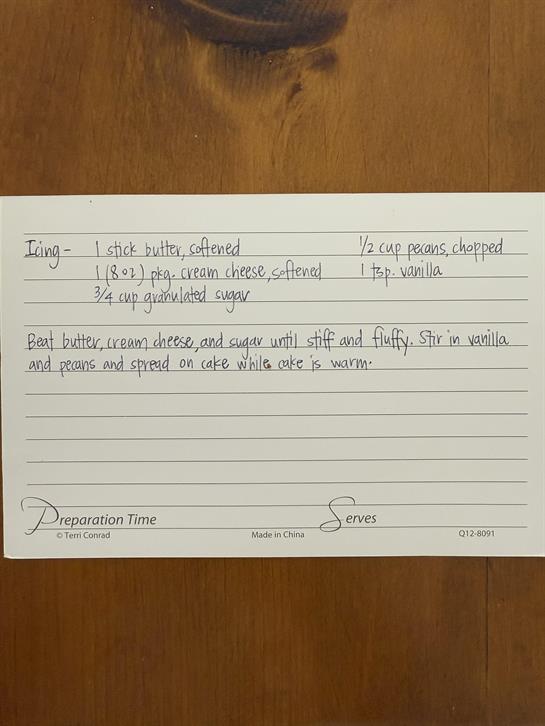 Icing - 1 stick butter, softened 1/2 cup pecans, chopped
1 (8 oz) pkg. cream cheese, softened 1 tsp. vanilla
3/4 cup granulated sugar
Beat butter, cream cheese, and sugar until stiff and fluffy. Stir in vanilla
and pecans and spread on cake while cake is warm.
Preparation Time Serves
© Terri Conrad Made in China Q12-8091